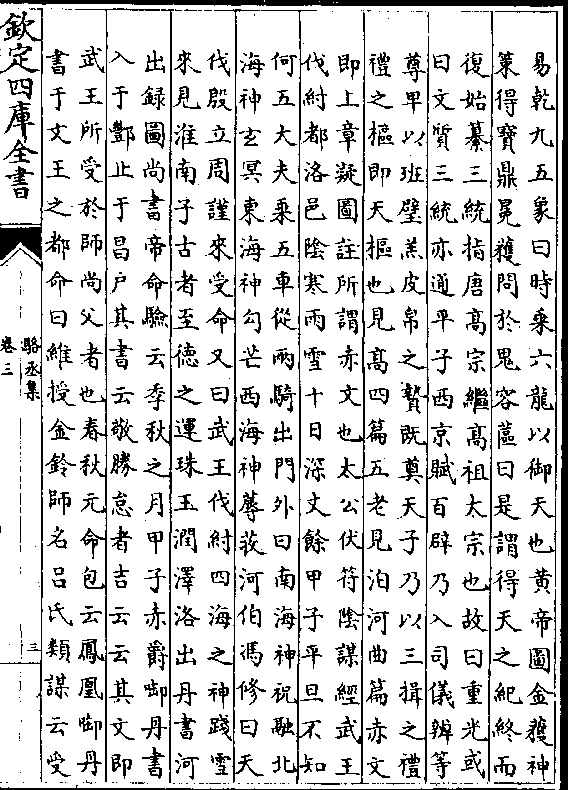 易乾九五象曰時乘六龍以御天也黃帝圖金獲神
䇿得寶鼎冕獲問於鬼容蓲曰是謂得天之紀終而
復始纂三統指唐高宗繼高祖太宗也故曰重光或
曰文質三統亦通平子西京賦百辟乃入司儀辨等
尊卑以班璧羔皮帛之贄既奠天子乃以三揖之禮
禮之樞即天樞也見高四篇五老見泊河曲篇赤文
即上章凝圖註所謂赤文也太公伏符隂謀經武王
伐紂都洛邑隂寒雨雪十日深丈餘甲子平旦不知
何五大夫乘五車從兩騎出門外曰南海神祝融北
海神玄冥東海神勾芒西海神蓐荻河伯馮修曰天
伐殷立周謹來受命又曰武王伐紂四海之神踐雪
來見淮南子古者至德之運珠玉潤澤洛出丹書河
出録圖尚書帝命驗云季秋之月甲子赤爵啣丹書
入于酆止于昌户其書云敬勝怠者吉云云其文即
武王所受於師尚父者也春秋元命包云鳳凰啣丹
書于文王之都命曰維授金鈴師名吕氏類謀云受
欽定四庫全書
駱丞集
卷三
三